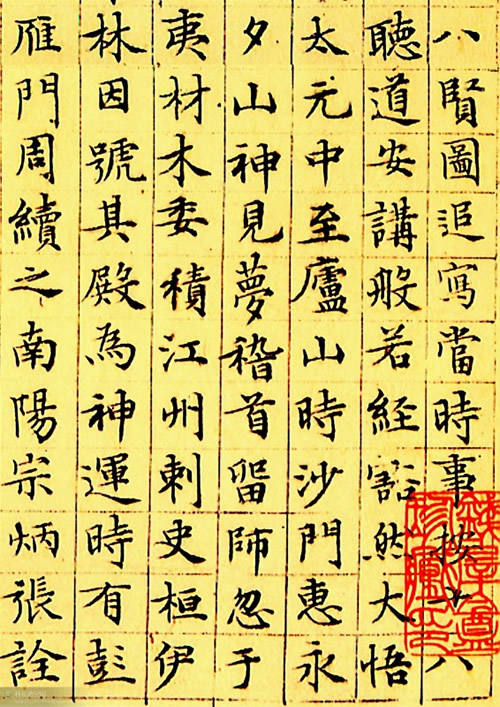 八賢圖追寫當時事按十八
聽道安講般若經豁然大悟
太元中至廬山時沙門惠永
夕山神見夢稽首留師忽于
夷材木委積江州刺史桓伊
林因號其殿為神運時有彭
雁門周續之南陽宗炳張詮